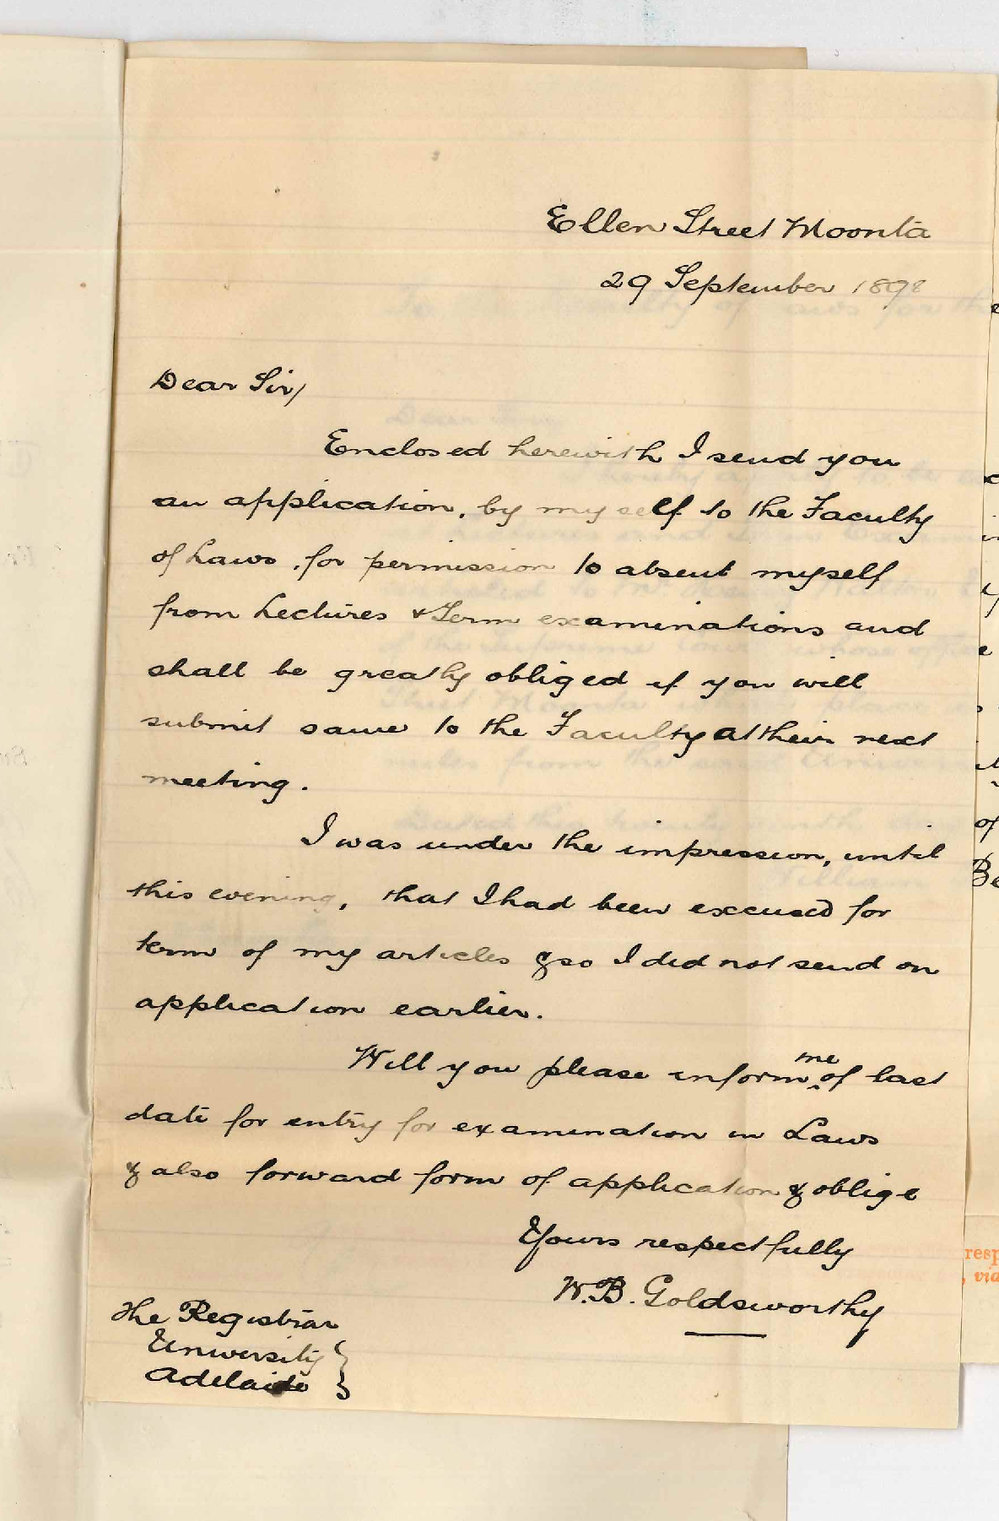 Ellen Street Moonta
29 September 1898
Dear Sir,
Enclosed herewith I send you
an application, by myself to the Faculty
of Laws, for permission to absent myself
from Lectures & Term examinations and
shall be greatly obliged if you will
submit same to the Faculty at their next
meeting.
I was under the impression, until
this evening, that I had been excused for
term of my articles & so I did not send an
application earlier.
Will you please inform me of last
date for entry for examination in Laws
& also forward form of application & oblige
Yours respectfully
W.B. Goldsworthy
The Registrar
University
Adelaide